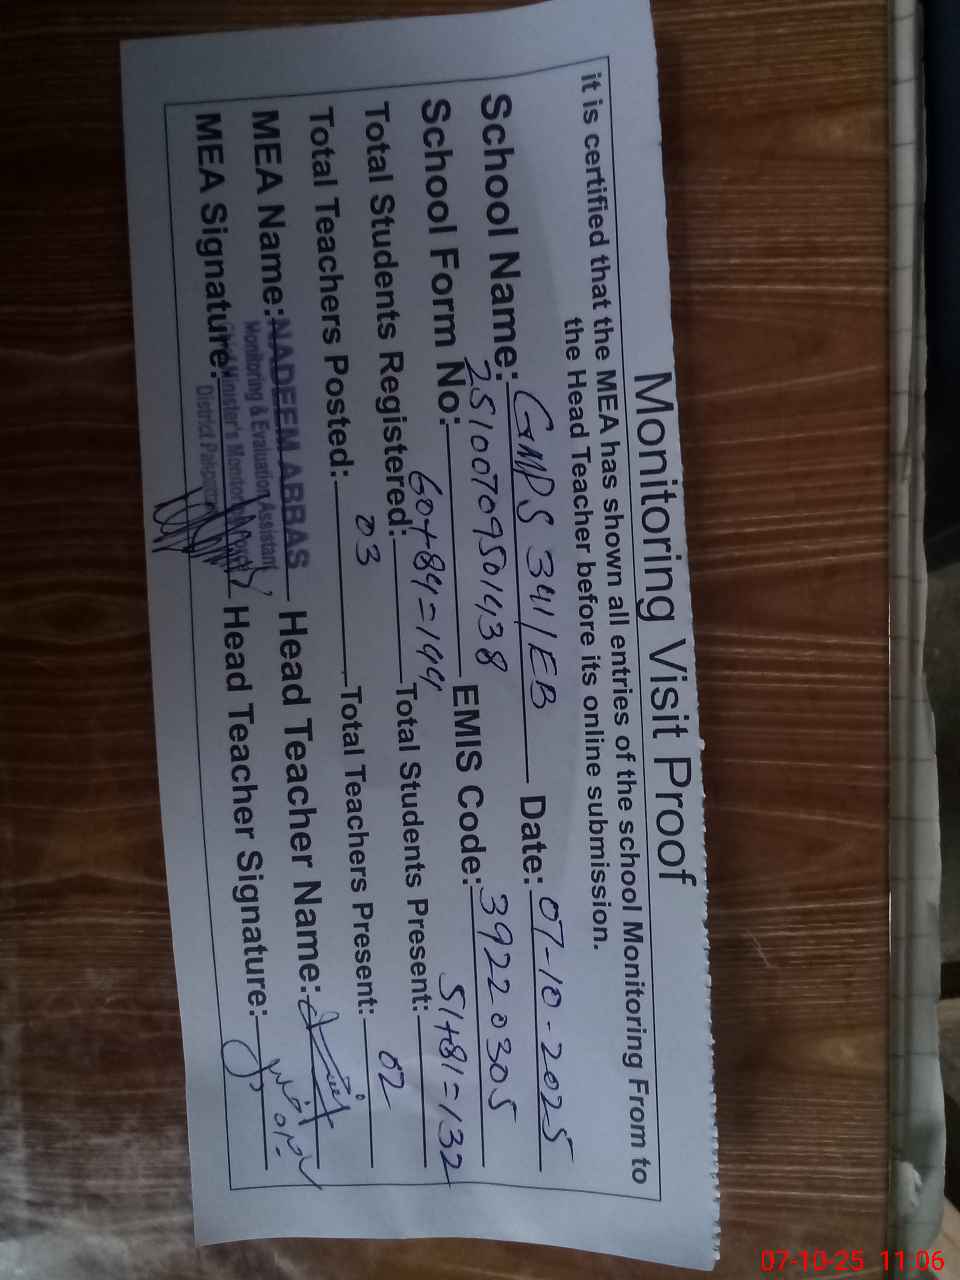 Monitoring Visit Proof
it is certified that the MEA has shown all entries of the school Monitoring From to
the Head Teacher before its online submission.
School Name: GMPS 341/EB Date: 07-10-2025
School Form No: 25100709501438 EMIS Code: 39220305
Total Students Registered: 60+84=144 Total Students Present: 51+81=132
Total Teachers Posted: 03 Total Teachers Present: 02
MEA Name: NADEEM ABBAS Head Teacher Name:
Monitoring & Evaluation Assistant
Chief Minister's Monitoring
District Pakpattan
MEA Signature: Head Teacher Signature:
07-10-25 11:06